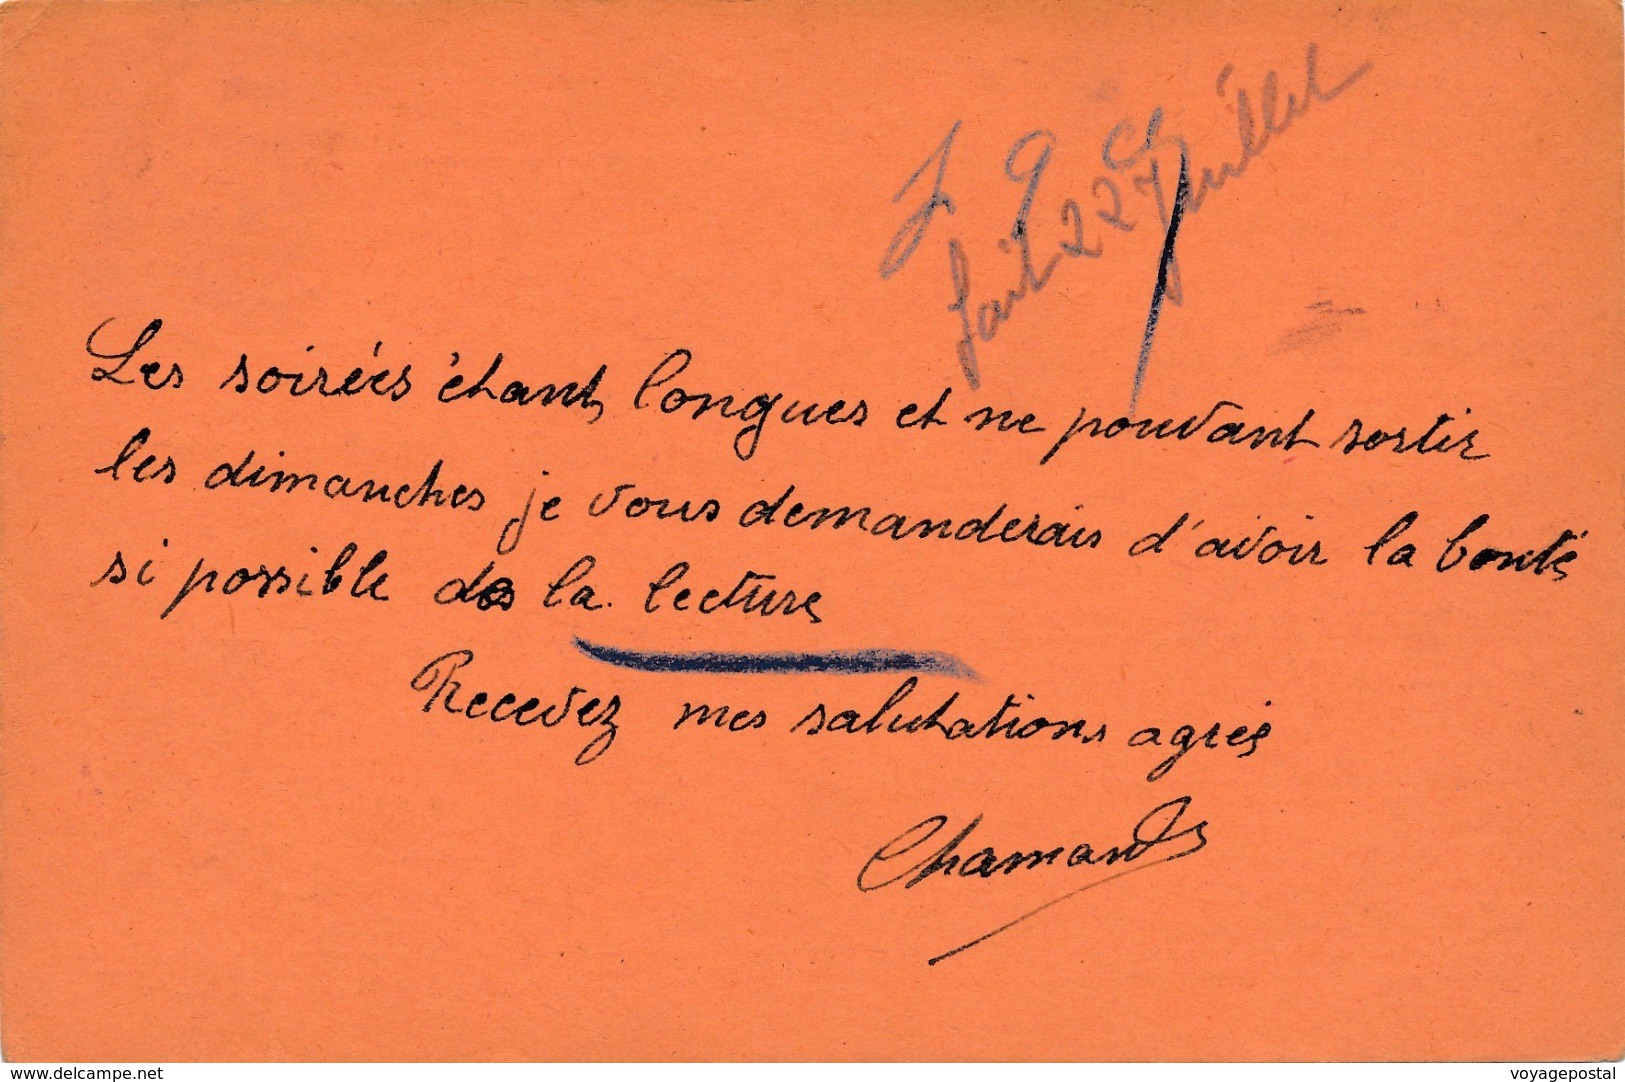 fait 22 Juillet
Les soirées étant longues et ne pouvant sortir
les dimanches je vous demanderais d'avoir la bonté
si possible de la lecture
Recevez mes salutations agrés
Chamand
www.delcampe.net
voyagepostal